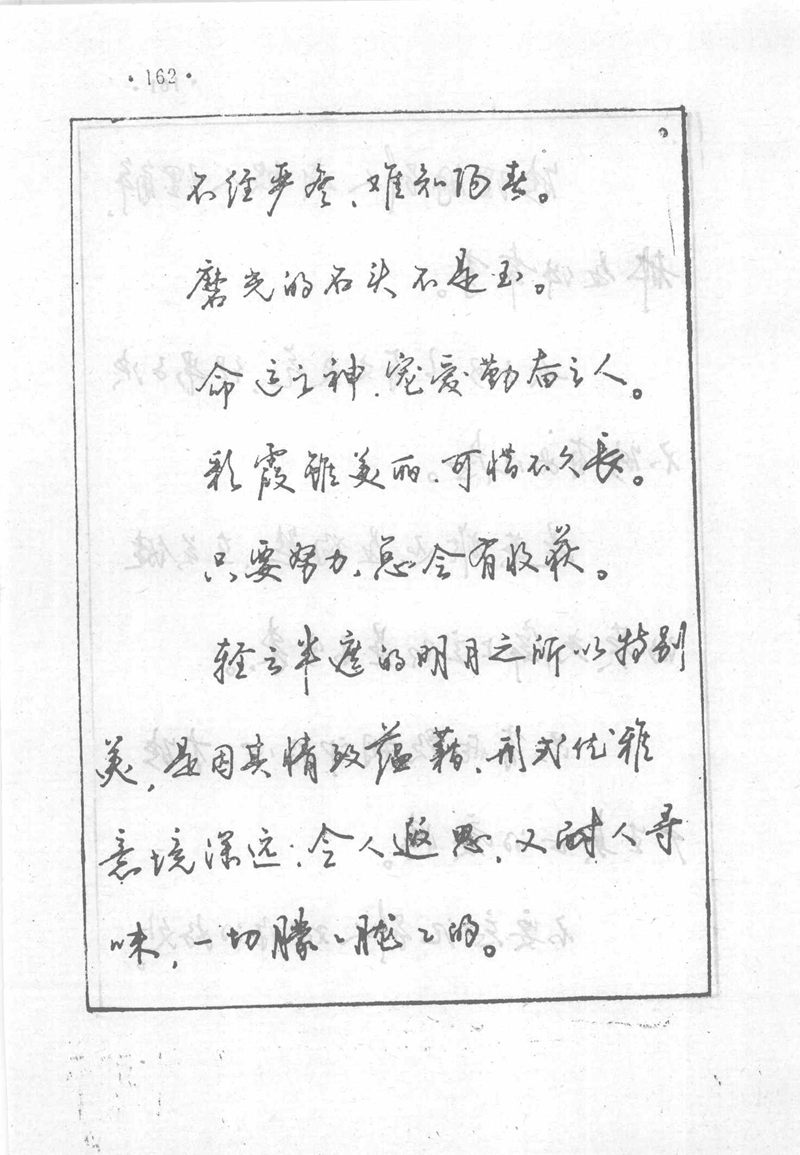 ·162·
不经严冬、难知阳春。
磨光的石头不是玉。
命运之神、宠爱勤奋之人。
彩霞虽美丽、可惜不久长。
只要努力、总会有收获。
轻云半遮的明月之所以特别
美，是因其情致蕴藉、形式优雅
意境深远；令人遐思，又耐人寻
味，一切朦々胧々的。